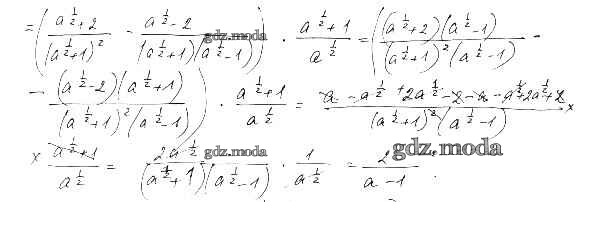 = ( (a^{1/2}+2)/(a^{1/2}+1)^2 - (a^{1/2}-2)/((a^{1/2}+1)(a^{1/2}-1)) ) · (a^{1/2}+1)/a^{1/2} = ( ((a^{1/2}+2)(a^{1/2}-1))/((a^{1/2}+1)^2(a^{1/2}-1)) -
- ((a^{1/2}-2)(a^{1/2}+1))/((a^{1/2}+1)^2(a^{1/2}-1)) ) · (a^{1/2}+1)/a^{1/2} = (a - a^{1/2} + 2a^{1/2} - 2 - a - a^{1/2} + 2a^{1/2} + 2)/((a^{1/2}+1)^2(a^{1/2}-1)) ×
× (a^{1/2}+1)/a^{1/2} = 2a^{1/2}/((a^{1/2}+1)(a^{1/2}-1)) · 1/a^{1/2} = 2/(a-1)
gdz.moda
gdz.moda
gdz.moda